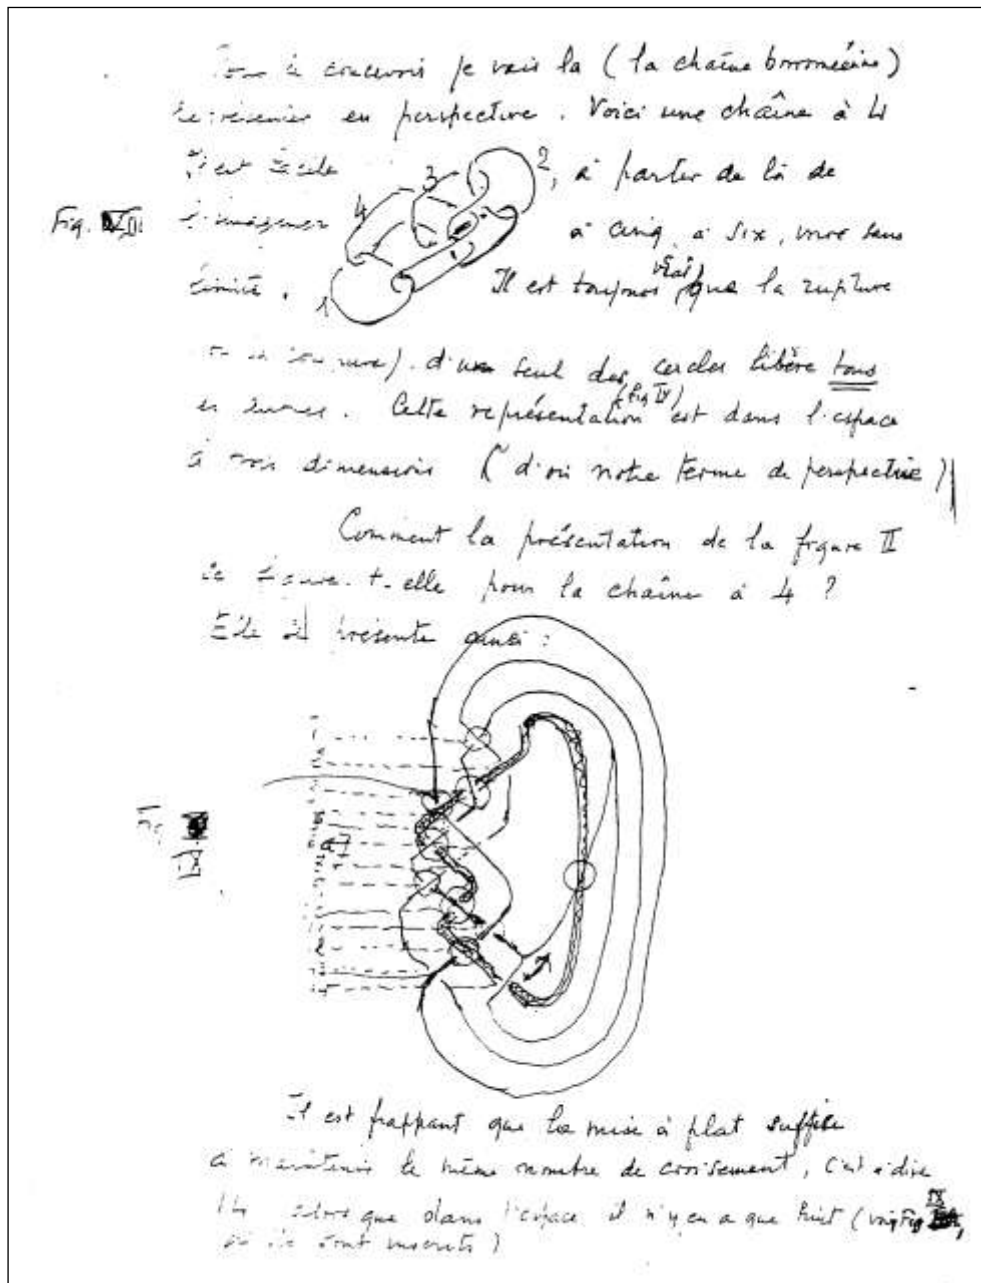 je vais la (la chaîne borroméenne)
en perspective. Voici une chaîne à 4
3 2, à partir de là de
Fig. 4 l'imaginer à cinq, à six, voire sans
limite. 1 Il est toujours vrai que la rupture
d'un seul des cercles libère tous
Cette représentation (fig IX) est dans l'espace
à trois dimensions (d'où notre terme de perspective)
Comment la présentation de la figure II
se figure-t-elle pour la chaîne à 4 ?
Elle se présente ainsi :
Fig
IX
Il est frappant que la mise à plat suffise
à maintenir le même nombre de croisement, c'est à dire
14 alors que dans l'espace il n'y en a que huit (voir Fig IX,
où ils sont inscrits)